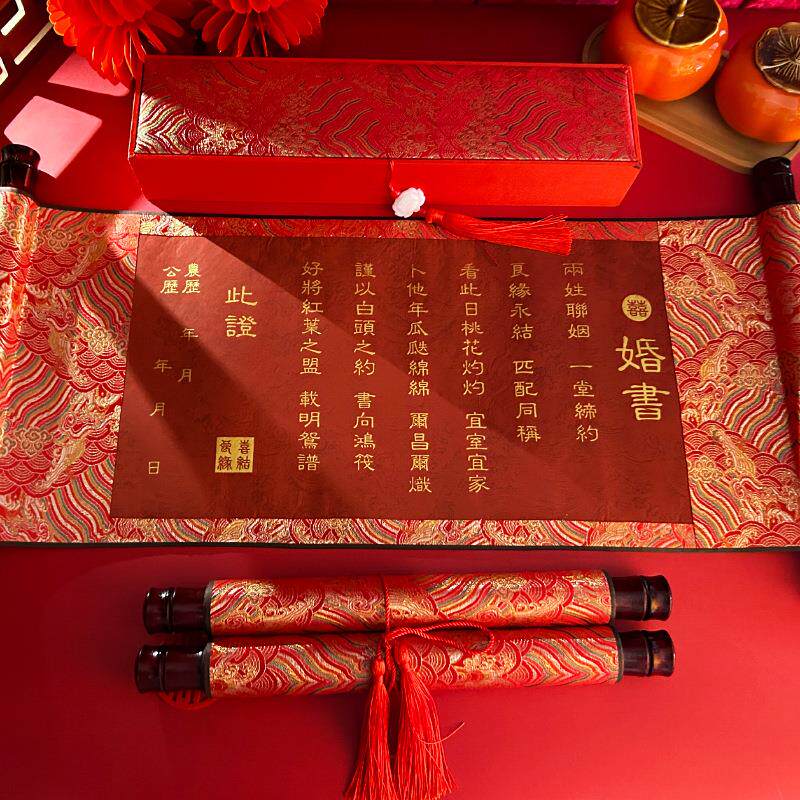 囍
婚書
兩姓聯姻 一堂締約
良緣永結 匹配同稱
看此日桃花灼灼 宜室宜家
卜他年瓜瓞綿綿 爾昌爾熾
謹以白頭之約 書向鴻箋
好將紅葉之盟 載明鴛譜
此證
喜結
良緣
農歷 年 月
公歷 年 月 日